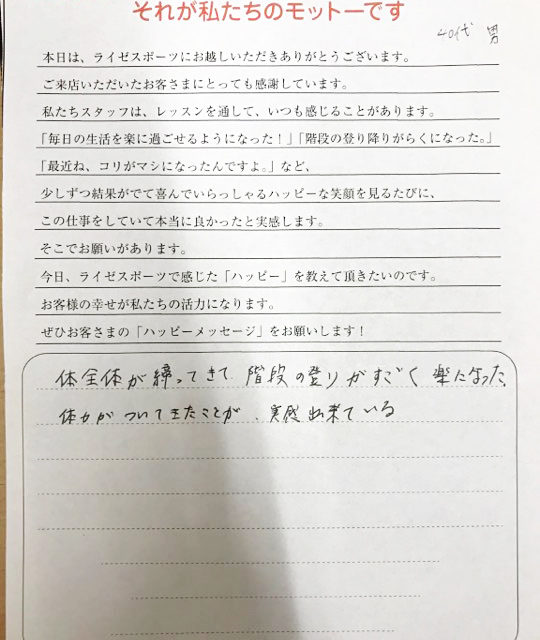 それが私たちのモットーです
40代 男
本日は、ライゼスポーツにお越しいただきありがとうございます。
ご来店いただいたお客さまにとっても感謝しています。
私たちスタッフは、レッスンを通して、いつも感じることがあります。
「毎日の生活を楽に過ごせるようになった！」「階段の登り降りがらくになった。」
「最近ね、コリがマシになったんですよ。」など、
少しずつ結果がでて喜んでいらっしゃるハッピーな笑顔を見るたびに、
この仕事をしていて本当に良かったと実感します。
そこでお願いがあります。
今日、ライゼスポーツで感じた「ハッピー」を教えて頂きたいのです。
お客様の幸せが私たちの活力になります。
ぜひお客さまの「ハッピーメッセージ」をお願いします！
体全体が締ってきて、階段の登りがすごく楽になった。
体力がついてきたことが、実感出来ている